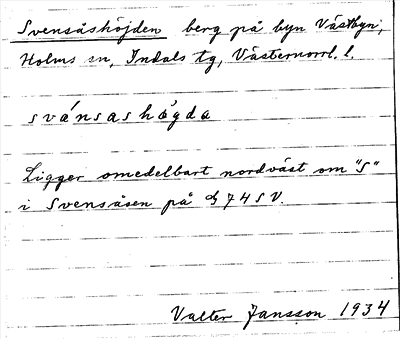 Svensåshöjden berg på byn Västbyn,
Holms sn, Indals tg, Västernorrl. l.
svánsashǿgda
Ligger omedelbart nordväst om "S"
i Svensåsen på 74 SV.
Valter Jansson 1934